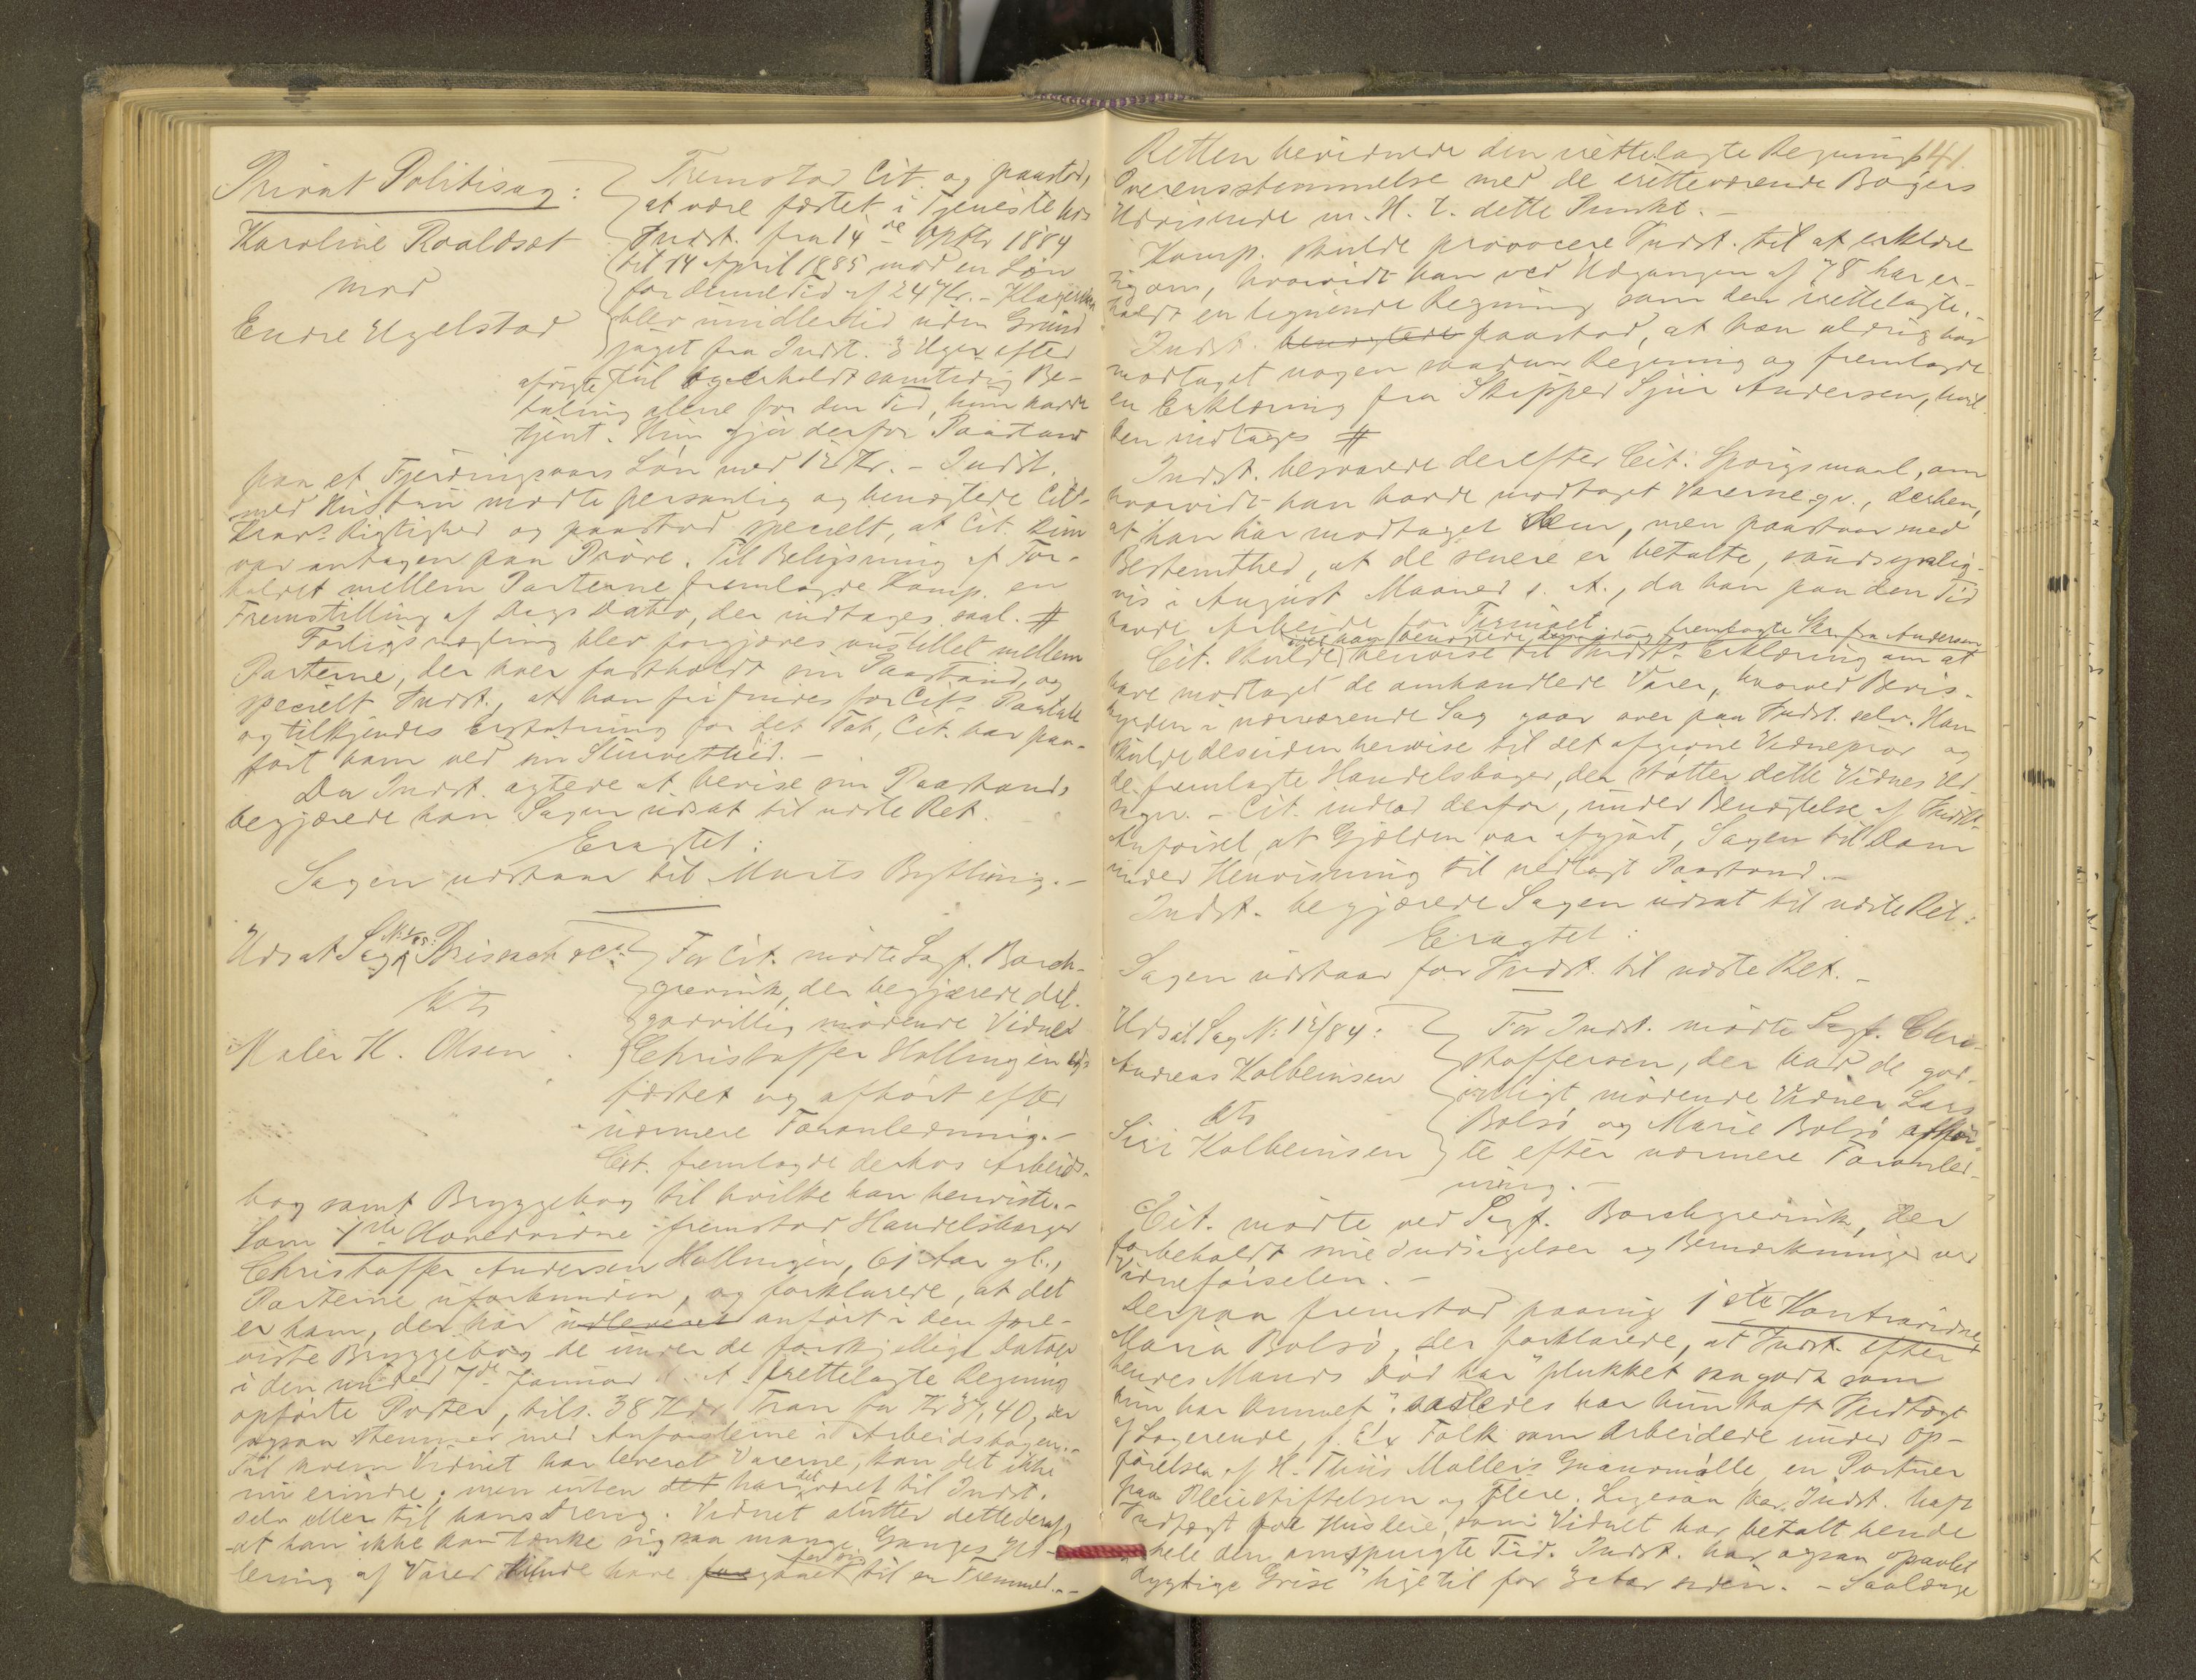 Privat Politisag:
Karoline Roaldsæt
mod
Endre Ugelstad
Fremstod Cit. og paastod,
at være fæstet i Tjeneste hos
Indst. fra 14de Oktbr 1884
til 14 April 1885 mod en Løn
for denne Tid af 24 Kr. - Klagersken
blev imidlertid uden Grund
jaget fra Indst. 3 Uger efter
afvigte Jul og erholdt samtidig Be-
taling alene for den Tid, hun havde
tjent. Hun gjør derfor Paastand
paa et Fjerdingaars Løn med 12 Kr. - Indst.
med Hustru mødte personlig og benægtede Cit.s
Kravs Rigtighed og paastod specielt, at Cit. kun
var antagen paa Prøve. Til Belysning af For-
holdet mellem Parterne fremlagde Komp. en
Fremstilling af Dags Dato, der indtages saal. #
Forligsmægling blev forgjæves anstillet mellem
Parterne, der hver fastholdt sin Paastand, og
specielt Indst., at han frifindes for Cits Paatale
og tilkjendes Erstatning for det Tab, Cit. har paa-
ført ham ved sin Stævning.
Da Indst. agtede at bevise sin Paastand,
begjærede han Sagen udsat til næste Ret.
Eragtet:
Sagen udstaar til Marts Bything. -
Udsat Sag № 4/85: Brisach & Co
kts
Maler H. Olsen
For Cit. mødte Sagf. Borch-
grevink, der begjærede det
godvillig mødende Vidne
Christoffer Hollingen ed-
fæstet og afhørt efter
nærmere Foranledning. -
Cit. fremlagde derhos Arbeids-
bog samt Bryggebog til hvilke han henviste. -
Som 1ste Hovedvidne fremstod Handelsborger
Christoffer Andersen Hollingen, 61 Aar gl.,
Parterne uforbunden, og forklarede, at det
er ham, der har udleveret anført i den fore-
viste Bryggebog de under de forskjellige Datoer
i den under 7de Januar d. A. irettelagte Regning
opførte Poster, tils. 38 Kdr Tran for Kr 37,40, der
ogsaa stemmer med Anførslerne i Arbeidsbogen. -
Til hvem Vidnet har leveret Varerne, kan det ikke
nu erindre; men enten det har det været til Indst.
selv eller til hans Dreng. Vidnet slutter dette deraf,
at han ikke kan tænke sig saa mange Ganges Ud-
lering af Varer kunde have foregaaet til en Fremmed. -
141.
Retten bevidnede den irettelagte Regnings
Overensstemmelse med de iretteværende Bøgers
Udvisende m. H. t. dette Punkt. -
Komp. skulde provocere Indst. til at erklære
sig om, hvorvidt han ved Udgangen af 78 har er-
holdt en lignende Regning som den irettelagte. -
Indst. benægtede paastod, at han aldrig har
modtaget nogen saadan Regning og fremlagde
en Erklæring fra Skipper Sjur Andersen, hvil-
ken indtages #
Indst. besvarede derefter Cit. Spørgsmaal, om
hvorvidt han havde modtaget Varerne gv., derhen,
at han har modtaget dem, men paastaar med
Bestemthed, at de senere er betalte, sandsynlig-
vis i August Maaned s. A., da han paa den Tid
havde Arbeide for Firmaet.
Cit. skulde, idet han benægtede den idag fremlagte Skr. fra Andersen,
henvise til Indsts Erklæring om at
have modtaget de omhandlede Varer, hvorved Bevis-
byrden i nærværende Sag gaar over paa Indst. selv. Han
skulde desuden henvise til det afgivne Vidneprov og
de fremlagte Handelsbøger, der støtter dette Vidnes Ud-
sagn. - Cit. indlod derfor, under Benægtelse af Indsts
Anførsel, at Gjælden var afgjort, Sagen til Dom
under Henvisning til nedlagt Paastand. -
Indst. begjærede Sagen udsat til næste Ret:
Eragtet:
Sagen udstaar for Indst. til næste Ret. -
Udsat Sag № 12/84:
Andreas Kolbeinsen
kts
Siri Kolbeinsen
For Indst. mødte Sagf. Chri-
stoffersen, der bad de god-
villigt mødende Vidner Lars
Bolsø og Marie Bolsø afhør-
te efter nærmere Foranled-
ning. -
Cit. mødte ved Sagf. Borchgrevink, der
forbeholdt sine Indsigelser og Bemærkninger ved
Vidneførselen. -
Derpaa fremstod paany 1ste Kontravidne
Maria Bolsø, der forklarede, at Indst. efter
hendes Mands Død har "plukket saa godt som
hun har kunnet": saaledes har hun haft Indtægt
af Logerende, f. Ex Folk som arbeidede under Op-
førelsen af H. Thiis Møllers Guanomølle, en Portner
paa Pleiestiftelsen og Flere. Ligesaa har Indst. haft
Indtægt for Husleie, som Vidnet har betalt hende
i hele den omspurgte Tid. Indst. har ogsaa opavlet
"dygtige Grise" lige til for 3 Aar siden. - Saalænge